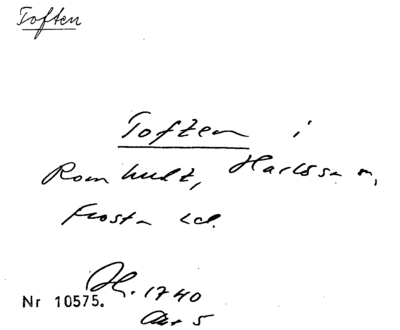 Toften
Toften i
Romhult, Harlösa sn,
Frosta hd.
Nr 10575. 1740
Akt 5